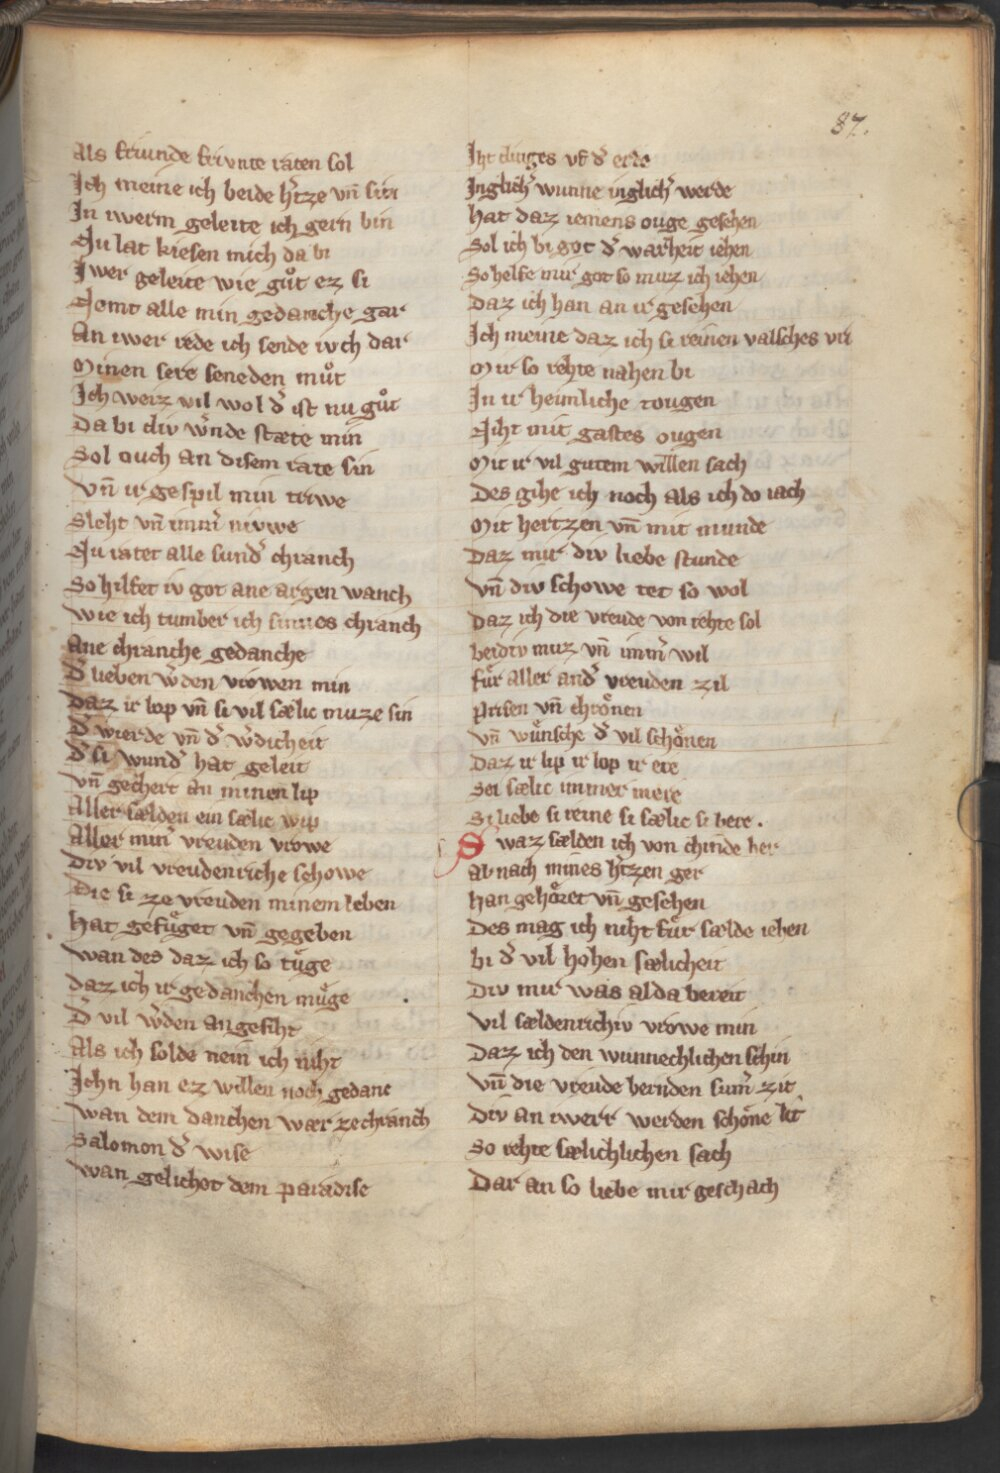 87.
Als friunde frivnte raten sol
Ich meine ich beide h̓tze vn̄ sin
In iwerm geleite ich gern bin
Nu lat kiesen mich da bi
Iwer geleite wie gůt ez si
Nemt alle min gedanche gar
An iwer rede ich sende ivch dar
Minen sere seneden můt
Ich weiz vil wol d̓ ist nu gůt
Da bi div w̓nde stæte min
Sol ouch an disem rate sin
Vn̄ ir gespil min triwe
Sleht vn̄ imm̓ nivwe
Nu ratet alle sund̓ chranch
So hilfet iv got ane argen wanch
Wie ich tumber ich sinnes chranch
Ane chranche gedanche
D̓ lieben w̓den vrowen min
Daz ir lop vn̄ si vil sælic muze sin
D̓ wierde vn̄ d̓ w̓dicheit
D̓ si wund̓ hat geleit
Vn̄ gechert an minen lip
Aller sælden ein sælic wip
Aller min̓ vreuden vrowe
Div vil vreudenriche schowe
Die si ze vreuden minem leben
Hat gefůget vn̄ gegeben
Wan des daz ich so tůge
Daz ich ir gedanchen můge
D̓ vil w̓den angesiht
Als ich solde nein ich niht
Ichn han ez willen noch gedanc
Wan dem danchen wær ze chranch
Salomon d̓ wise
Wan gelichet dem paradise
Iht dinges vf d̓ erde
Inglich̓ wunne inglich̓ werde
Hat daz iemens ouge gesehen
Sol ich bi got d̓ warheit iehen
So helfe mir got so muz ich iehen
Daz ich han an ir gesehen
Ich meine daz ich si reinen valsches vri
Mir so rehte nahen bi
In ir heimliche tougen
Niht mit gastes ougen
Mit ir vil gutem willen sach
Des gihe ich noch als ich do iach
Mit hertzen vn̄ mit munde
Daz mir div liebe stunde
Vn̄ div schowe tet so wol
Daz ich die vreude von rehte sol
beidiv muz vn̄ imm̓ wil
Fůr aller and̓ vreuden zil
Prisen vn̄ chrönen
Vn̄ wůnsche d̓ vil schönen
Daz ir lip ir lop ir ere
Sei sælic immer mere
Si liebe si reine si sælic si here.
Swaz sælden ich von chinde her
Ab nach mines h̓tzen ger
Han gehöret vn̄ gesehen
Des mag ich niht fůr sælde iehen
bi d̓ vil hohen sælicheit
Div mir was alda bereit
Vil sældenrichiv vrowe min
Daz ich den wunnechlichen schin
Vn̄ die vreude bernden sum̓ zit
Div an iwerr werden schöne lit
So rehte sælichlichen sach
Dar an so liebe mir geschach